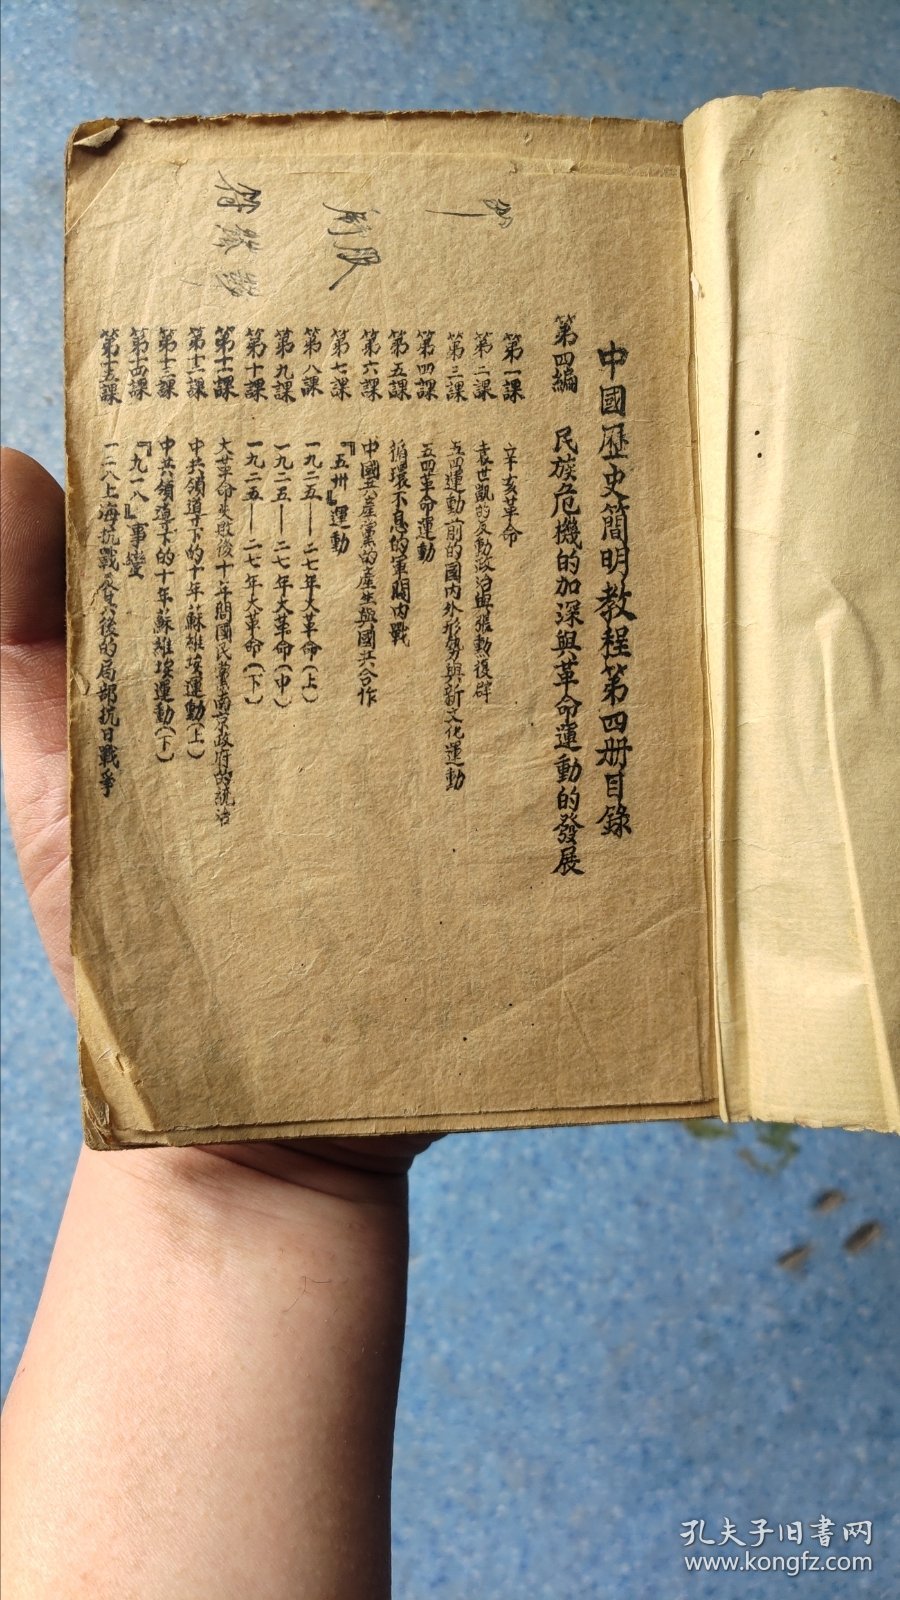 中國歷史簡明教程第四册目錄
第四編 民族危機的加深與革命運動的發展
第一課 辛亥革命
第二課 袁世凱的反動政治與張勳復辟
第三課 五四運動前的國内外形勢與新文化運動
第四課 五四革命運動
第五課 循環不息的軍閥内戰
第六課 中國共產黨的產生與國共合作
第七課 『五卅』運動
第八課 一九二五——二七年大革命(上)
第九課 一九二五——二七年大革命(中)
第十課 一九二五——二七年大革命(下)
第十一課 大革命失敗後十年間國民黨南京政府的統治
第十二課 中共領導下的十年蘇維埃運動(上)
第十三課 中共領導下的十年蘇維埃運動(下)
第十四課 『九一八』事變
第十五課 一二八上海抗戰及其後的局部抗日戰爭
孔夫子旧書网
www.kongfz.com